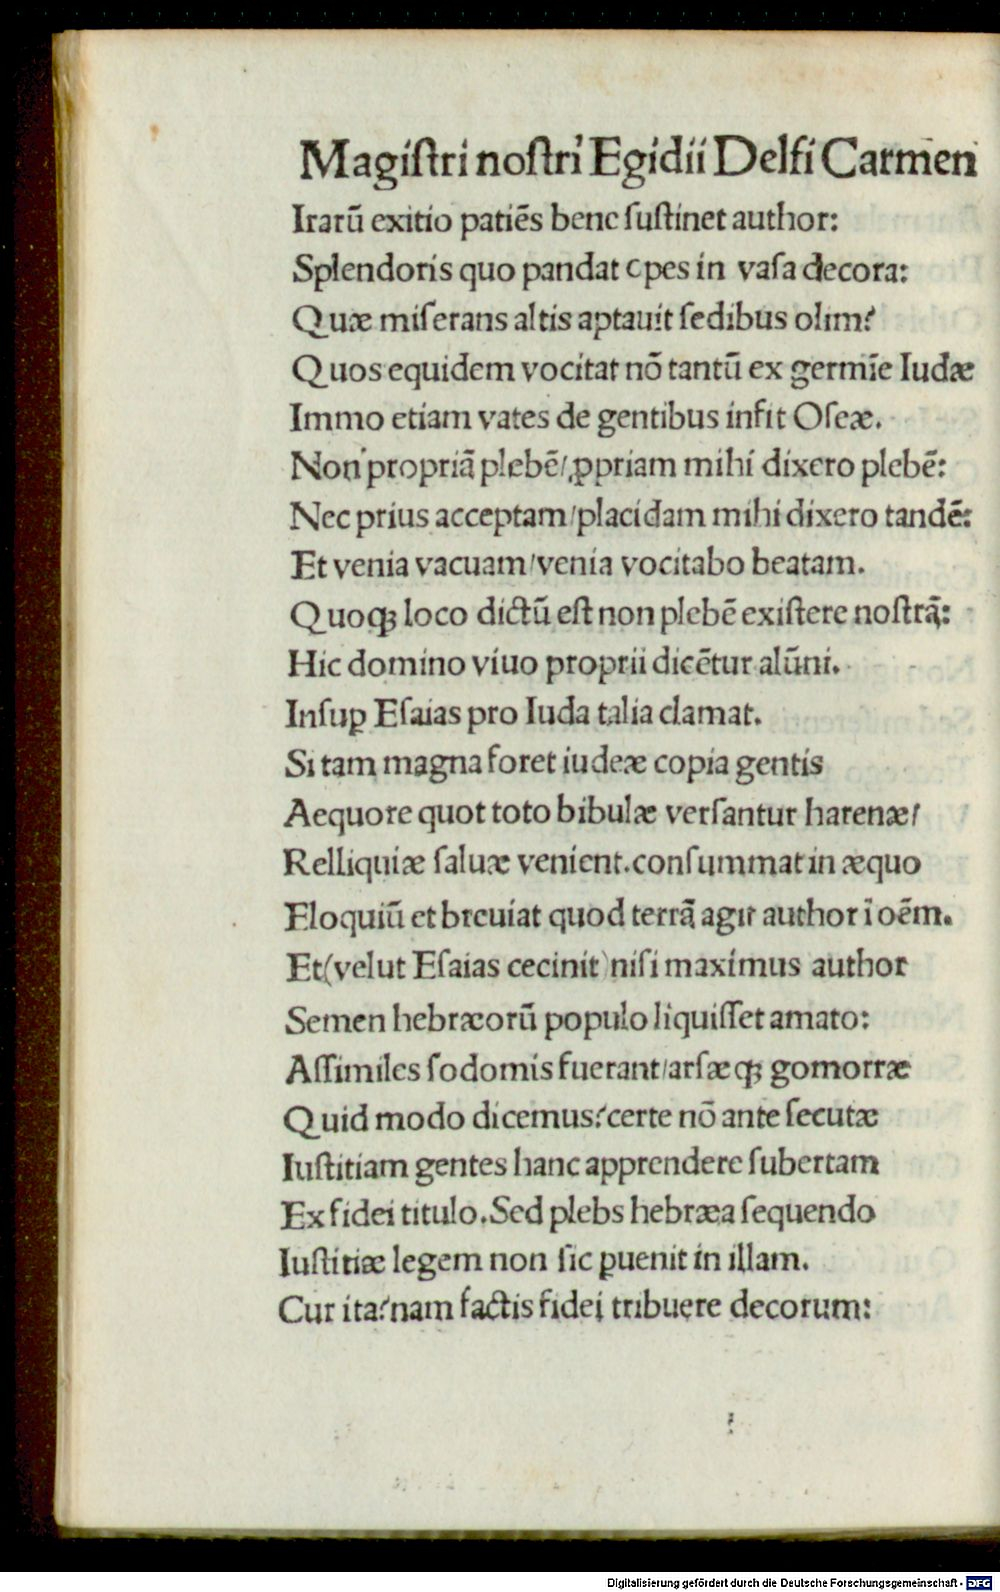 Magiſtri noſtri Egidii Delfi Carmen
Irarū exitio patiēs bene ſuſtinet author:
Splendoris quo pandat opes in vaſa decora:
Quæ miſerans altis aptauit ſedibus olim?
Quos equidem vocitat nō tantū ex germīe Iudæ
Immo etiam vates de gentibus infit Oſeæ.
Non propriā plebē/ ꝓpriam mihi dixero plebē:
Nec prius acceptam/placidam mihi dixero tandē:
Et venia vacuam/venia vocitabo beatam.
Quoqꝫ loco dictū eſt non plebē exiſtere noſtrā:
Hic domino viuo proprii dicētur alūni.
Inſuꝑ Eſaias pro Iuda talia clamat.
Si tam magna foret iudeæ copia gentis
Aequore quot toto bibulæ verſantur harenæ/
Relliquiæ ſaluæ venient.conſummat in æquo
Eloquiū et breuiat quod terrā agit author ī oēm.
Et(velut Eſaias cecinit)niſi maximus author
Semen hebræorū populo liquiſſet amato:
Aſſimiles ſodomis fuerant/arſæqꝫ gomorræ
Quid modo dicemus?certe nō ante ſecutæ
Iuſtitiam gentes hanc apprendere ſubertam
Ex fidei titulo.Sed plebs hebræa ſequendo
Iuſtitiæ legem non ſic ꝑuenit in illam.
Cur ita?nam factis fidei tribuere decorum:
Digitalisierung gefördert durch die Deutsche Forschungsgemeinschaft - DFG